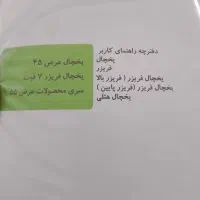 دفترچه راهنمای کاربر
یخچال
فریزر
یخچال فریزر ( فریزر بالا
یخچال فریزر (فریزر پایین )
یخچال هتلی
یخچال عرض ۴۵
یخچال فریزر ۷ فوت
سری محصولات عرض ۵۵